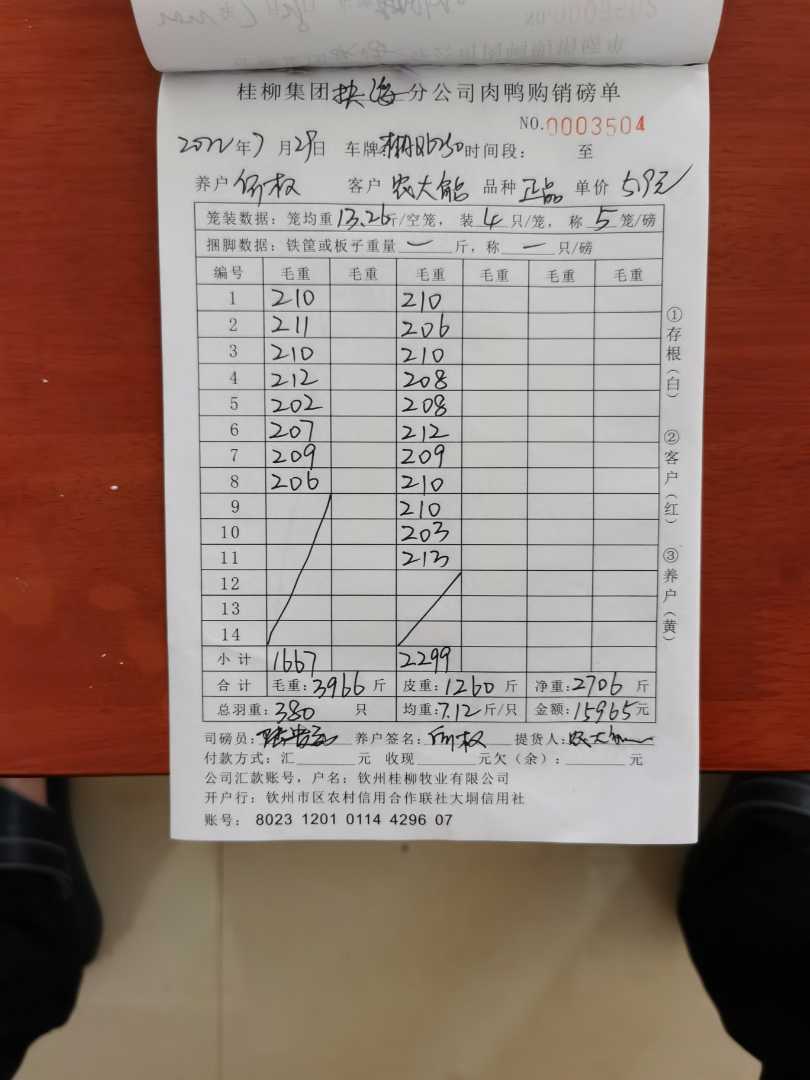 桂柳集团 分公司肉鸭购销磅单
NO.0003504
2022年7月29日 车牌: 时间段: 至
养户 权 客户 农大能 品种 正品 单价 5.9元
笼装数据: 笼均重13.26斤/空笼, 装4只/笼, 称5笼/磅
捆脚数据: 铁筐或板子重量一斤, 称一只/磅
编号 毛重 毛重 毛重 毛重 毛重 毛重
1 210 210
2 211 206
3 210 210
4 212 208
5 202 208
6 207 212
7 209 209
8 206 210
9 210
10 203
11 213
12
13
14
小计 1667 2299
合计 毛重:3966斤 皮重:1260斤 净重:2706斤
总羽重:380只 均重:7.12斤/只 金额:15965元
司磅员: 养户签名: 权 提货人:农大
付款方式: 汇 元 收现 元欠(余): 元
公司汇款账号, 户名: 钦州桂柳牧业有限公司
开户行: 钦州市区农村信用合作联社大垌信用社
账号: 8023 1201 0114 4296 07
①存根(白)
②客户(红)
③养户(黄)